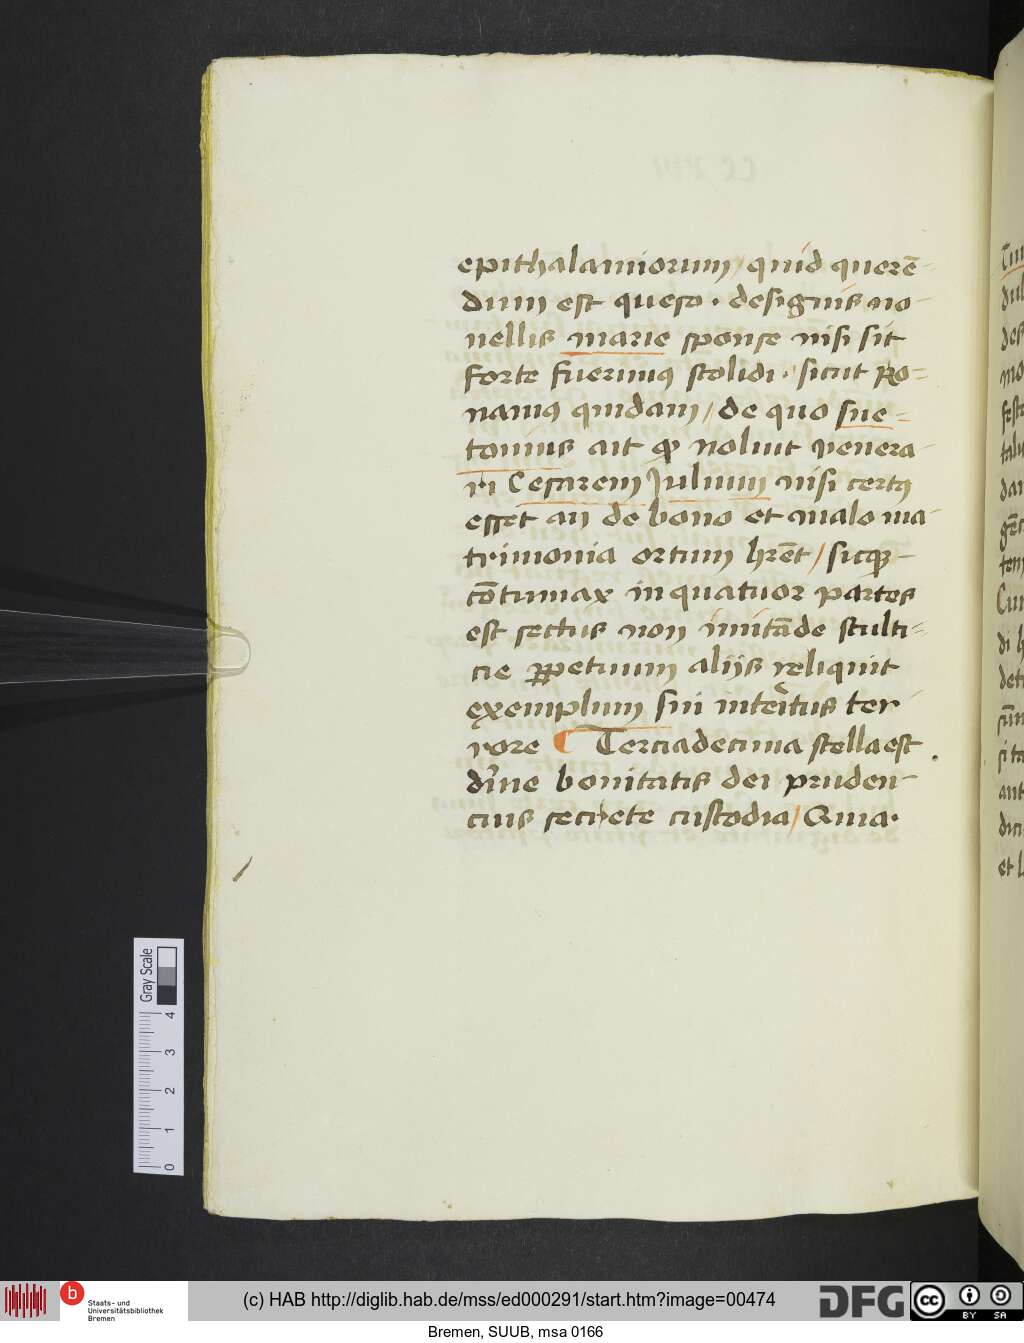 epithalamiorum / quid querē-
dum est queso · de signis no-
nellis marie sponse nisi sit
forte fuerimꝰ stolidi · sicut Ro=
namꝰ quidam / de quo sue=
tonius ait ꝙ noluit venera-
ri Cesarem Julium nisi certꝰ
esset an de bono et malo ma-
trimonia ortum hr̄et / sicqꝫ-
cōtumax in quatuor partes
est sectus non imitāde stulti=
cie ꝑpetuum alijs reliquit
exemplum sui interitus ter-
rore ¶ Terciadecima stella est
diuine bonitatis dei pruden-
cius secrete custodia / Quia·
Gray Scale
4
3
2
1
0
b
Staats- und
Universitätsbibliothek
Bremen
(c) HAB http://diglib.hab.de/mss/ed000291/start.htm?image=00474
DFG
cc BY SA
Bremen, SUUB, msa 0166